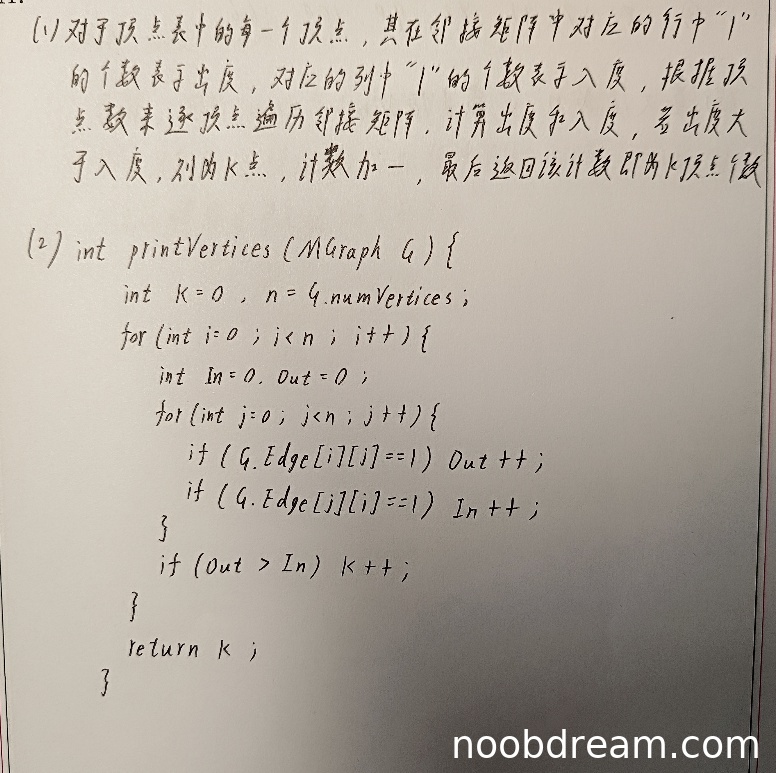 (1) 对于顶点表中的每一个顶点，其在邻接矩阵中对应的行中“1”
的个数表于出度，对应的列中“1”的个数表于入度，根据顶
点数来逐顶点遍历邻接矩阵，计算出度和入度，若出度大
于入度，则为K点，计数加一，最后返回该计数即为K顶点个数
(2) int printVertices (MGraph G) {
int k=0 , n=G.numVertices;
for (int i=0 ; i<n ; i++) {
int In=0, Out=0 ;
for (int j=0; j<n ; j++) {
if (G.Edge[i][j]==1) Out ++ ;
if (G.Edge[j][i]==1) In ++ ;
}
if (Out > In) k++ ;
}
return k ;
}
noobdream.com